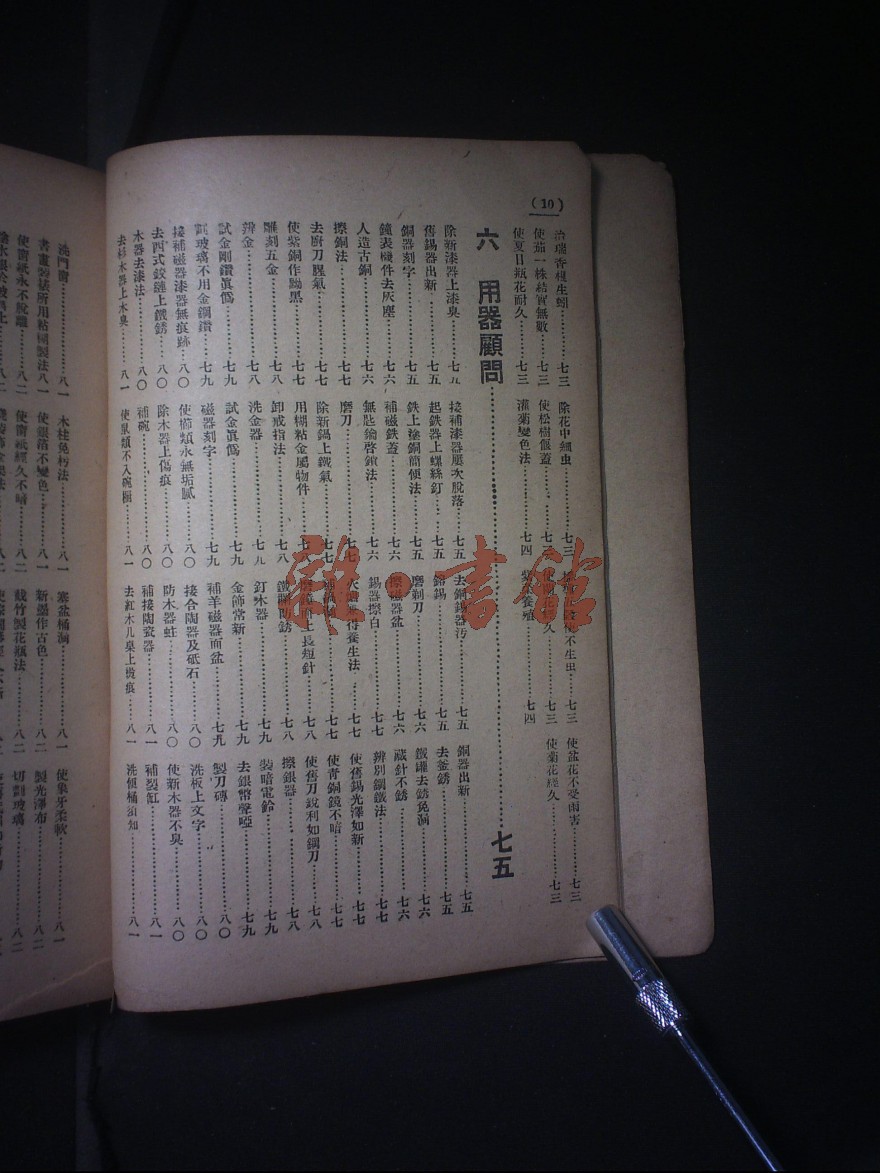 (10)
治瑞香根生蚓……七三
除花中細虫……七三
不生虫……七三
使盆花不受雨害……七三
使茄一株結實無數……七三
使松樹偃蓋……七三
久……七三
使菊花經久……七三
使夏日瓶花耐久……七三
灌菊變色法……七四
養殖……七四
六 用器顧問……七五
除新漆器上漆臭……七五
接補漆器屢次脫落……七五
去銅錫器污……七五
銅器出新……七五
舊錫器出新……七五
起鉄器上螺絲釘……七五
鎔錫……七五
去釜銹……七五
銅器刻字……七五
鉄上塗銅簡便法……七五
磨剃刀……七六
鐵罐去銹免漏……七六
鐘表機件去灰塵……七六
補磁鉄蓋……七六
擦磁器盆……七六
藏針不銹……七六
人造古銅……七六
無匙鑰啓鎖法……七六
錫器擦白……七七
辨別鋼鐵法……七七
擦銅法……七七
磨刀……七七
養生法……七七
使舊錫光澤如新……七七
去廚刀腥氣……七七
除新鍋上鐵氣……七七
七七
使青銅鏡不暗……七七
使紫銅作黝黑……七七
用糊粘金屬物件……七八
上長短針……七八
使舊刀銳利如鋼刀……七八
雕刻五金……七八
卸戒指法……七八
防銹……七八
擦銀器……七八
辨金……七八
洗金器……七八
釘木器……七九
裝暗電鈴……七九
試金剛鑽眞僞……七九
試金眞僞……七九
金飾常新……七九
去銀幣聲啞……七九
割玻璃不用金鋼鑽……七九
磁器刻字……七九
補羊磁器面盆……七九
製刀磚……八〇
接補磁器漆器無痕跡……八〇
使櫛類永無垢膩……八〇
接合陶器及砥石……八〇
洗板上文字……八〇
去西式鉸鏈上鐵銹……八〇
除木器上傷痕……八〇
防木器蛀……八〇
使新木器不臭……八〇
木器去漆法……八〇
補碗……八〇
補接陶瓷器……八一
補裂缸……八一
去杉木器上木臭……八一
使臭類不入碗櫥……八一
去紅木几桌上燙痕……八一
洗恆桶須知……八一
洗門窗……八一
木柱免朽法……八一
塞盆桶漏……八一
使象牙柔軟……八一
書畫裝裱所用粘糊製法……八一
使銀箔不變色……八一
新墨作古色……八二
製光澤布……八二
使窗紙永不脫離……八二
使窗紙經久不暗……八二
截竹製花瓶法……八二
切割玻璃……八二